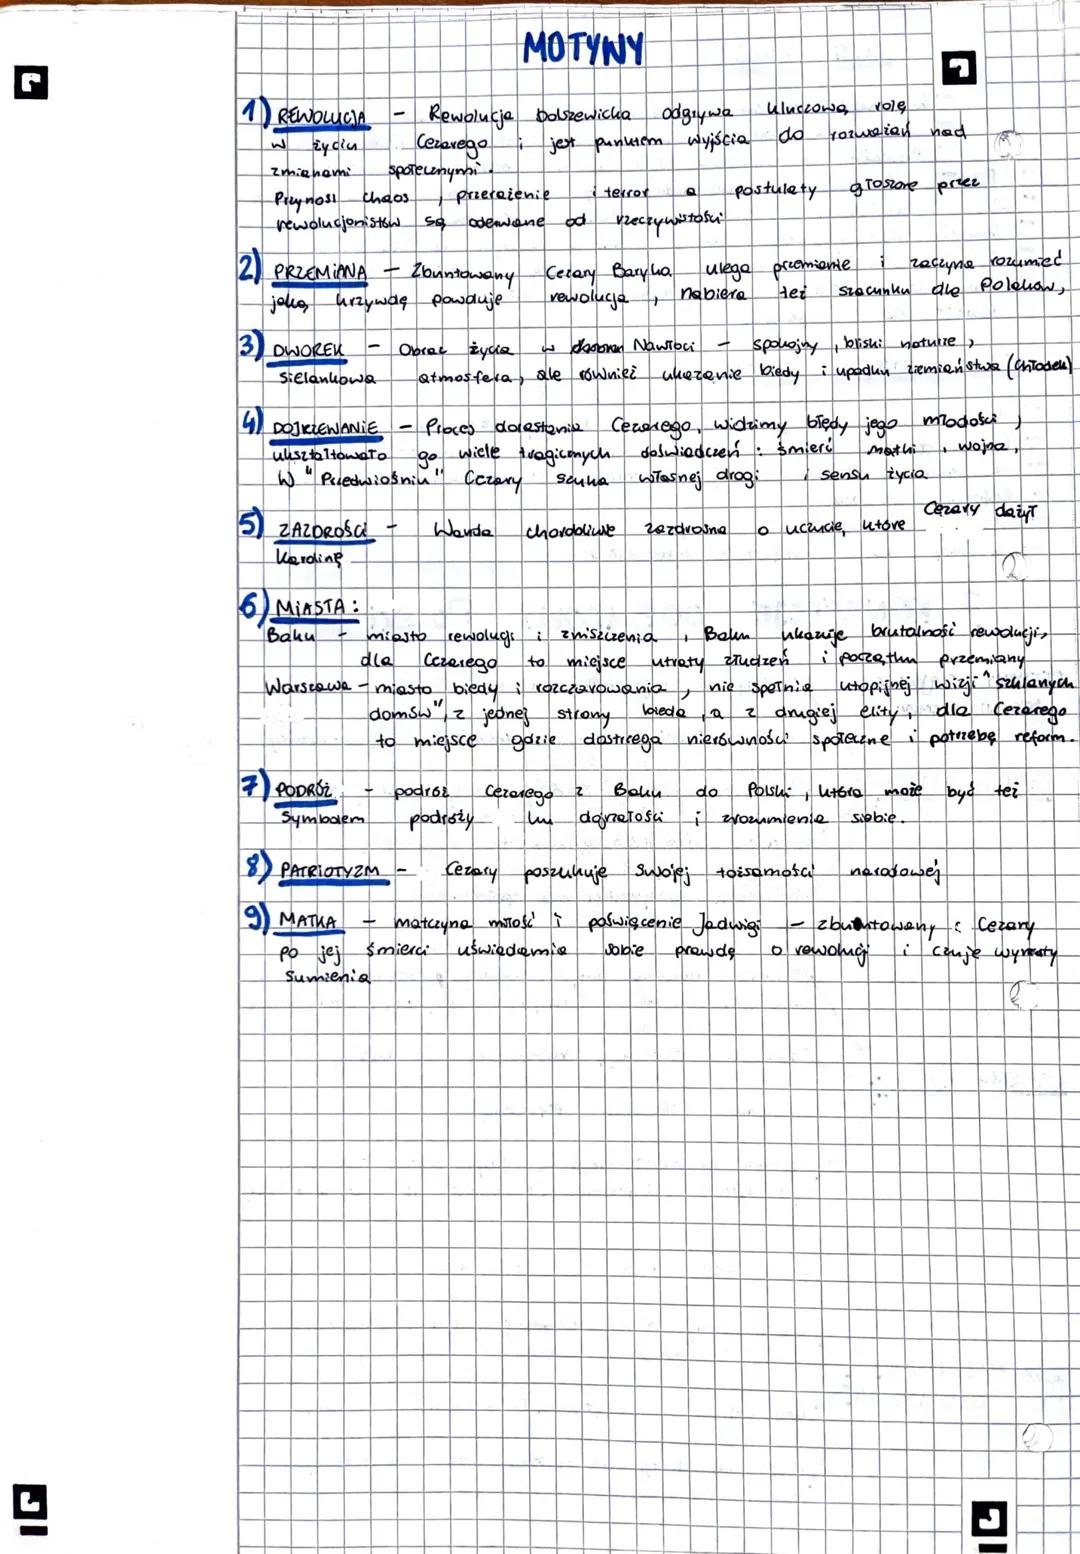 MOTYWY
1) REWOLUCJA – Rewolucja bolszewicka odgrywa kluczową rolę
w życiu Cezarego i jest punktem wyjścia do rozważań nad
zmianami społecznymi.
Przynosi chaos, przerażenie i terror a postulaty głoszone przez
rewolucjonistów są oderwane od rzeczywistości
2) PRZEMIANA – Zbuntowany Cezary Baryka ulega przemianie i zaczyna rozumieć
jaką krzywdę powoduje rewolucja, nabiera też szacunku dla Polaków,
3) DWOREK – Obraz życia w Nawłoci – spokojny, bliski naturze,
sielankowa atmosfera, ale również ukazanie biedy i upadku ziemiaństwa (Chłodek)
4) DOJRZEWANIE – Proces dorastania Cezarego, widzimy błędy jego młodości,
ukształtowało go wiele tragicznych doświadczeń: śmierć matki, wojna,
W "Przedwiośniu" Cezary szuka własnej drogi i sensu życia
5) ZAZDROŚĆ – Wanda chorobliwie zazdrosna o uczucie, które Cezary dażył
Karolinę
6) MIASTA:
Baku – miasto rewolucji i zniszczenia, Baku ukazuje brutalność rewolucji,
dla Cezarego to miejsce utraty złudzeń i początku przemiany
Warszawa – miasto biedy i rozczarowania, nie spełnia utopijnej wizji "szklanych
domów", z jednej strony bieda, a z drugiej elity, dla Cezarego
to miejsce gdzie dostrzega nierówności społeczne i potrzebę reform.
7) PODRÓŻ – podróż Cezarego z Baku do Polski, która może być też
symbolem podróży ku dojrzałości i zrozumienia siebie.
8) PATRIOTYZM – Cezary poszukuje swojej tożsamości narodowej
9) MATKA – matczyna miłość i poświęcenie Jadwigi – zbuntowany Cezary
po jej śmierci uświadamia sobie prawdę o rewolucji i czuje wyrzuty
sumienia